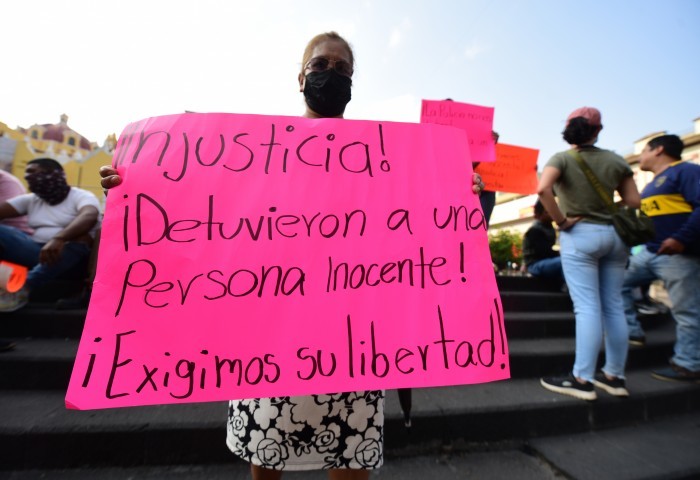 ¡Injusticia!
¡Detuvieron a una
Persona Inocente!
¡Exigimos su libertad!